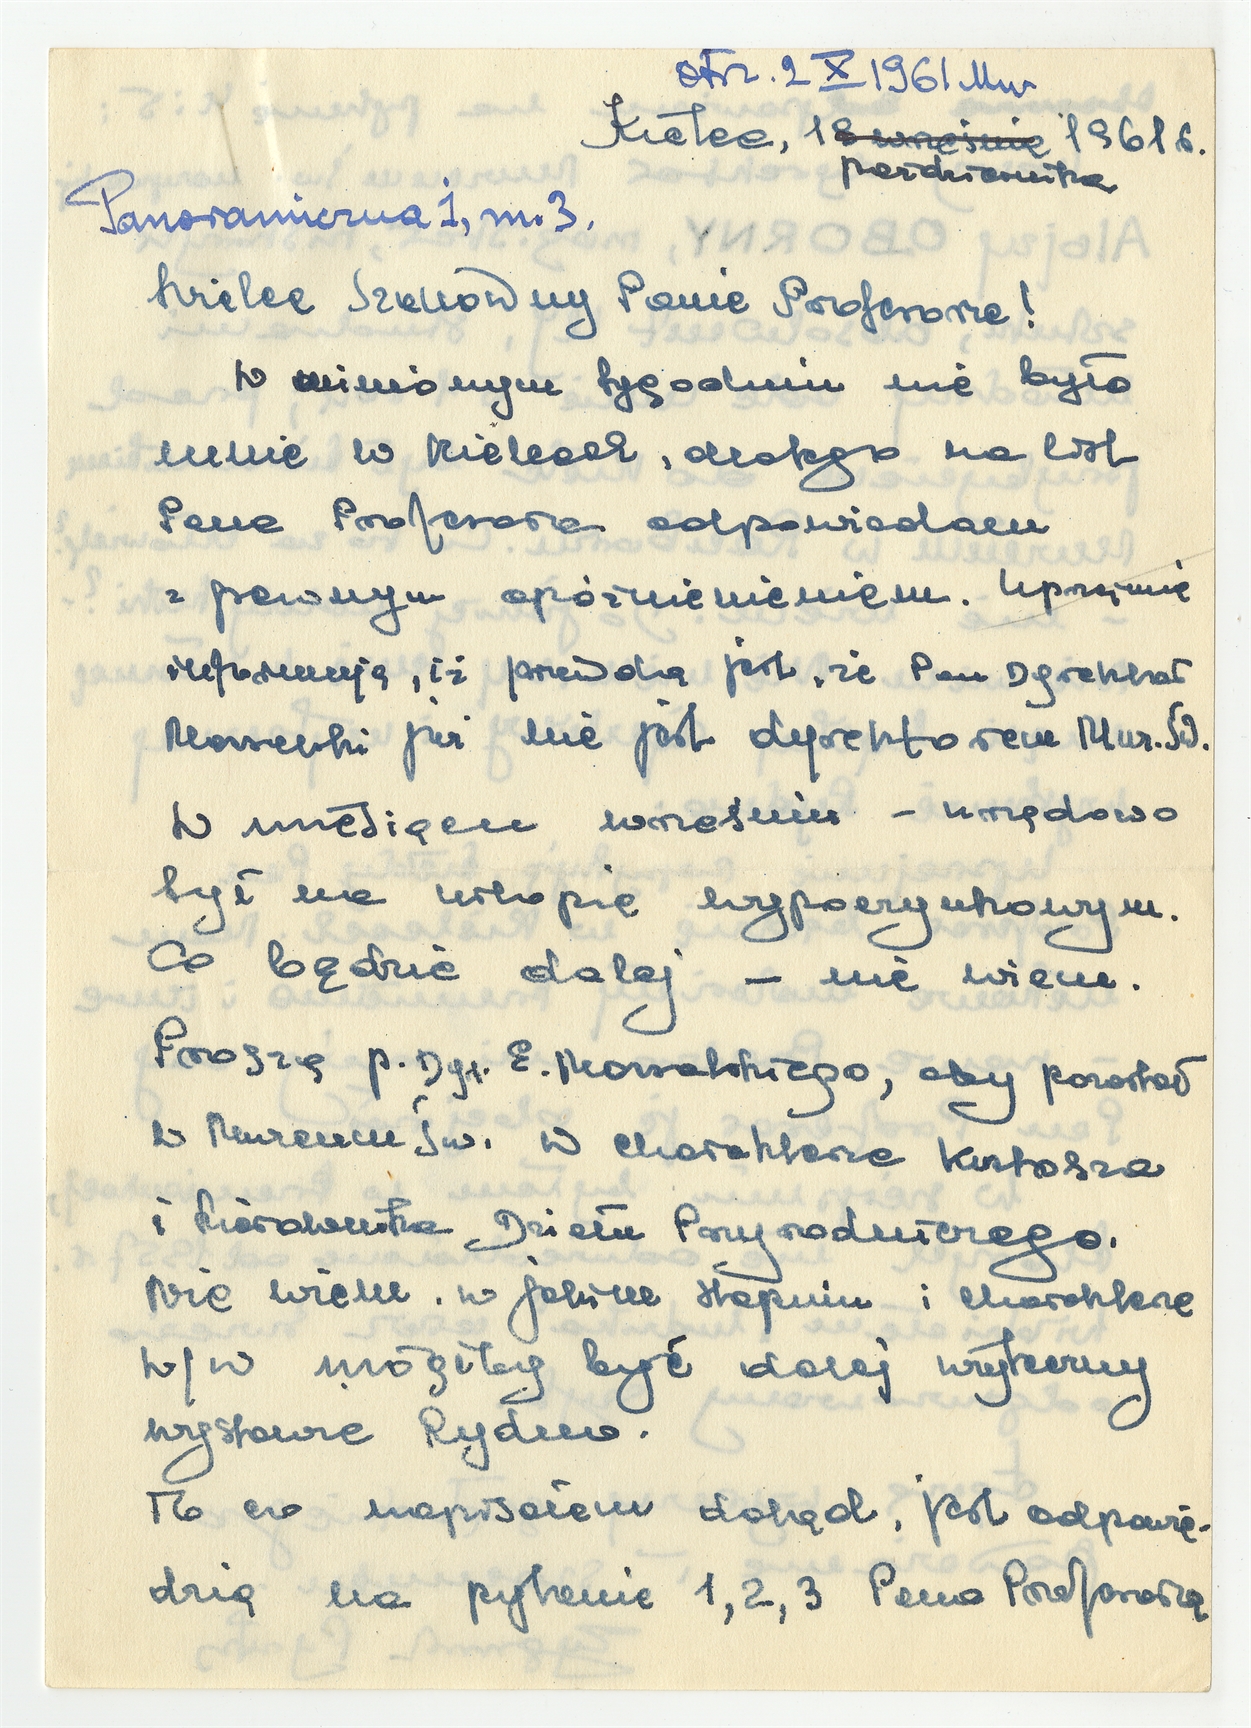 otrz. 2 X 1961 Mw
Kielce, 18 września 1961 r.
października
Panoramiczna 1, m. 3.
Wielce Szanowny Panie Profesorze!
W minionym tygodniu nie było
mnie w Kielcach, dlatego na list
Pana Profesora odpowiadam
z pewnym opóźnieniem. Uprzejmie
informuję, iż prawdą jest, że Pan Dyrektor
Massalski już nie jest dyrektorem Muz. Św.
W miesiącu wrześniu – urzędowo
był na urlopie wypoczynkowym.
Co będzie dalej – nie wiem.
Proszą p. Dyr. E. Massalskiego, aby pozostał
w Muzeum Św. w charakterze Kustosza
i Kierownika Działu Przyrodniczego.
Nie wiem w jakim stopniu i charakterze
w/w mógłby być dalej użyteczny
wystawie Rydna.
To co napisałem dotąd, jest odpowie-
dzią na pytanie 1, 2, 3 Pana Profesora